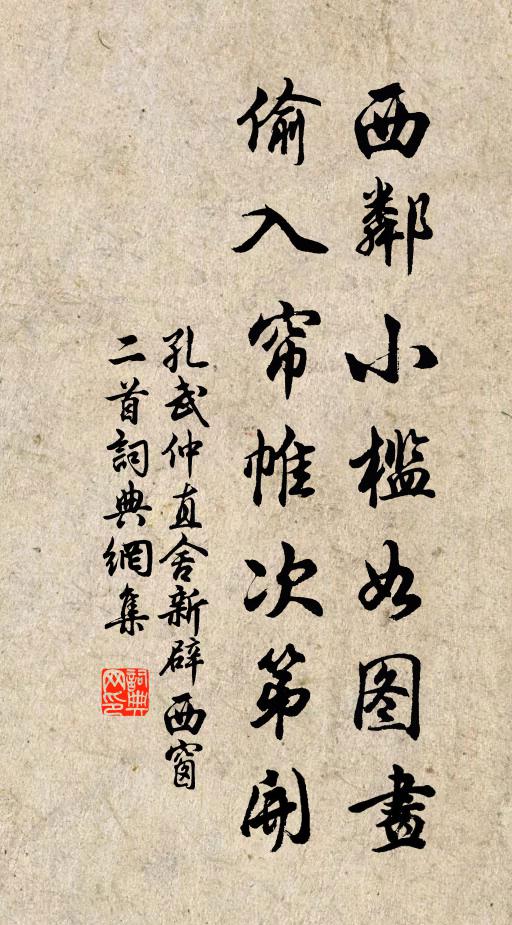 西鄰小檻如图畫
偷入帘帷次第開
孔武仲直舍新辟西窗
二首詞典網集
詞典网印